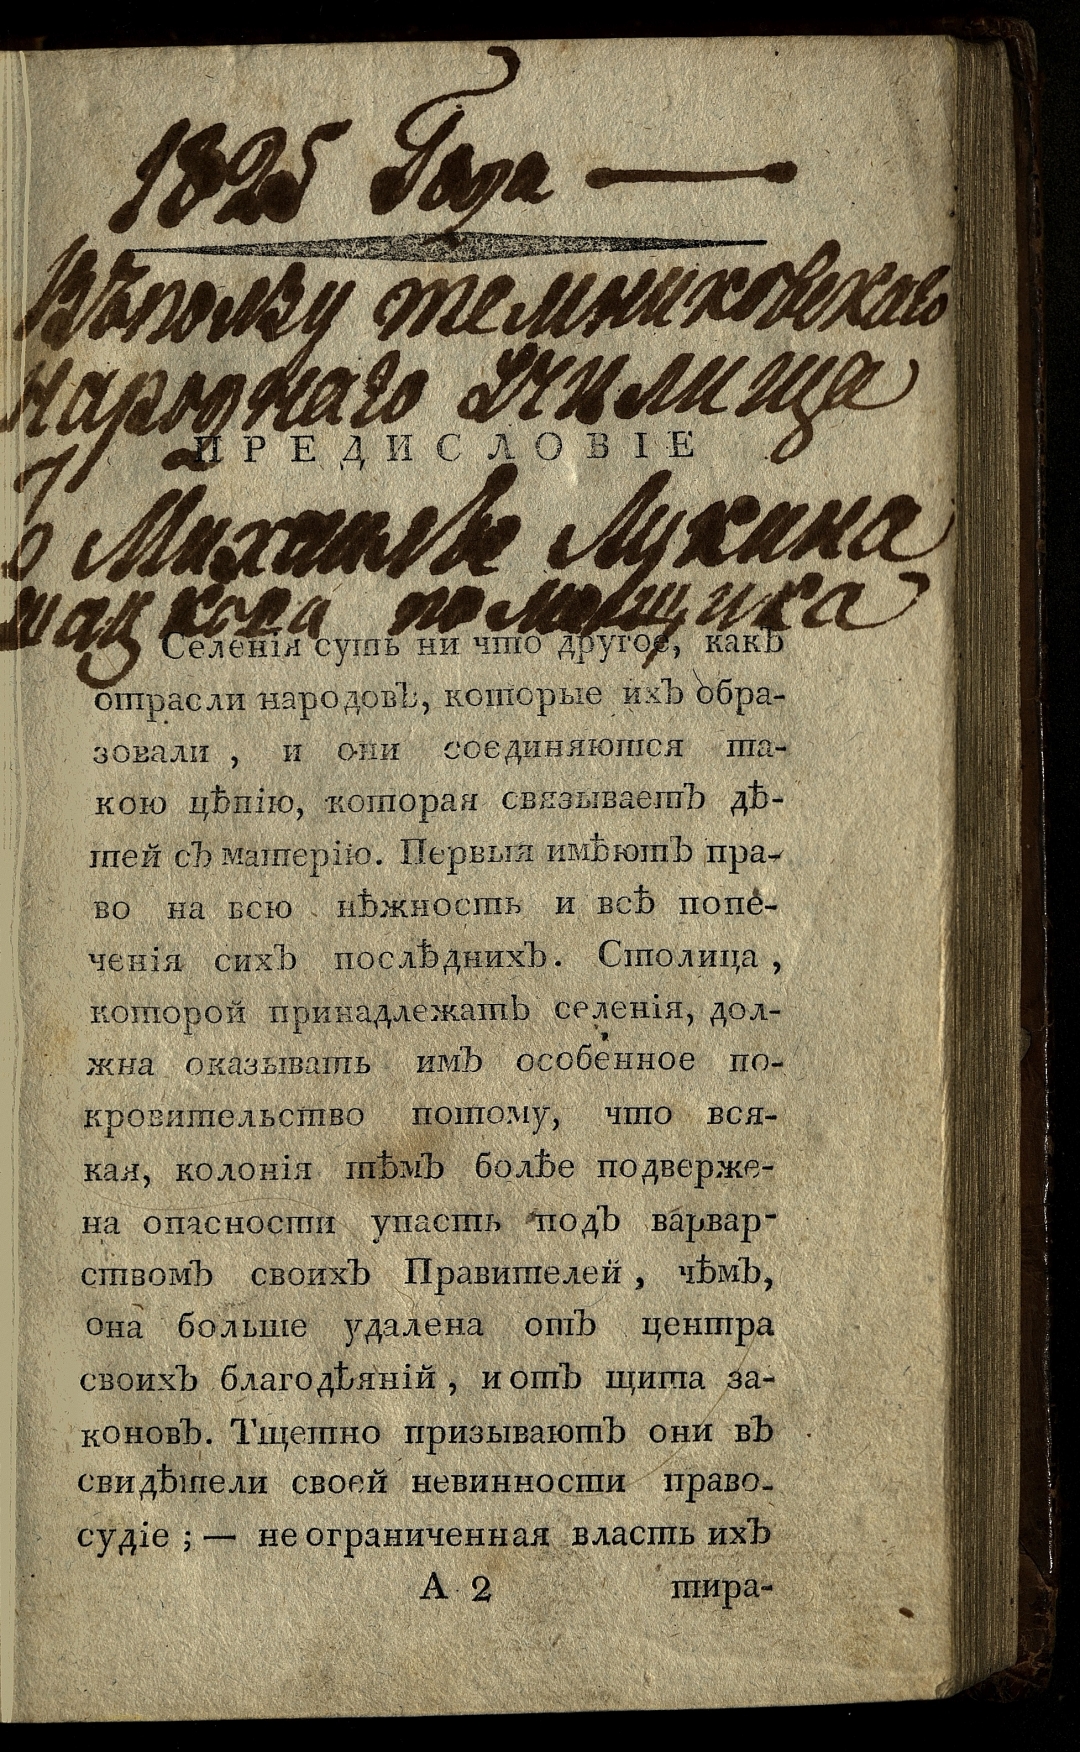 1825 Года
Въ ползу темниковскаго
народнаго училища
ПРЕДИСЛОВІЕ
Михаила Лукина
помещика
Селенія суть ни что другое, какъ
отрасли народовъ, которые ихъ обра-
зовали , и они соединяются та-
кою цѣпію, которая связываетъ дѣ-
тей съ матерію. Первыя имѣютъ пра-
во на всю нѣжность и всѣ попе-
ченія сихъ послѣднихъ. Столица ,
которой принадлежатъ селенія, дол-
жна оказывать имъ особенное по-
кровительство потому, что вся-
кая, колонія тѣмъ болѣе подверже-
на опасности упасть подъ варвар-
ствомъ своихъ Правителей , чѣмъ,
она больше удалена отъ центра
своихъ благодѣяній , и отъ щита за-
коновъ. Тщетно призываютъ они въ
свидѣтели своей невинности право-
судіе ; — не ограниченная власть ихъ
А 2 тира-